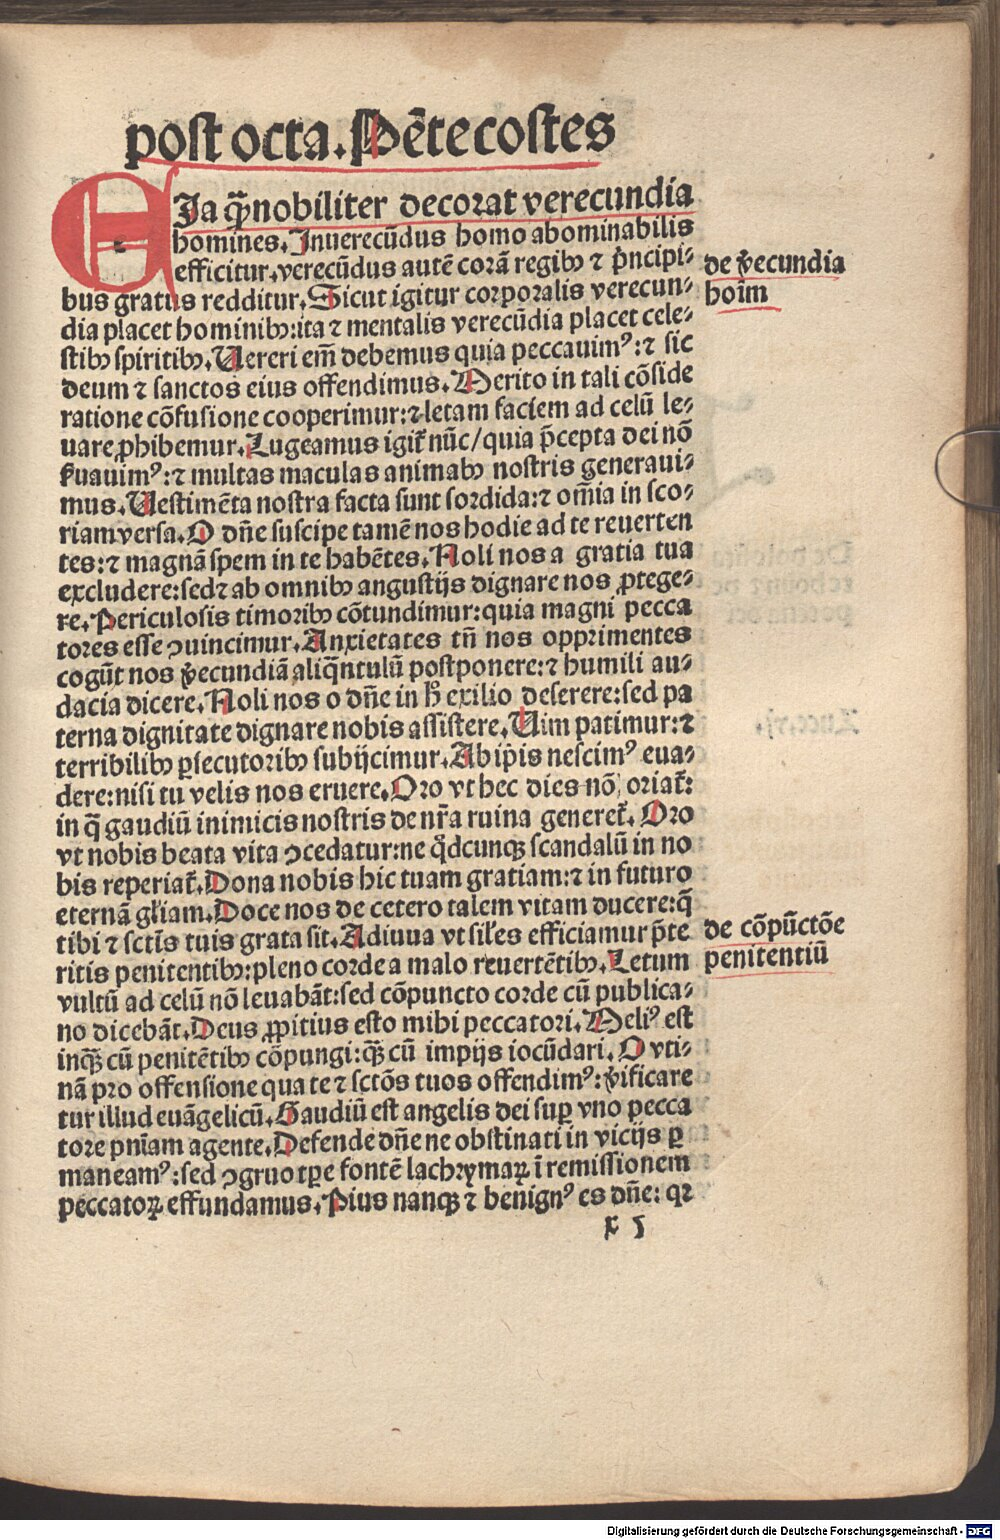 post octa. Pētecostes
EJa q̄ nobiliter decorat verecundia
homines. Inuerecūdus homo abominabilis
efficitur. verecūdus autē corā regibꝫ ⁊ p̄ncipi⸗
bus gratus redditur. Sicut igitur corporalis verecun⸗
dia placet hominibꝫ: ita ⁊ mentalis verecūdia placet cele⸗
stibꝫ spiritibꝫ. Uereri em̄ debemus quia peccauimꝰ: ⁊ sic
deum ⁊ sanctos eius offendimus. Merito in tali cōside
ratione cōfusione cooperimur: ⁊ letam faciem ad celū le⸗
uare ꝓhibemur. Lugeamus igit̄ nūc/ quia p̄cepta dei nō
ẜuauimꝰ: ⁊ multas maculas animabꝫ nostris generaui⸗
mus. Uestimēta nostra facta sunt sordida: ⁊ om̄ia in sco⸗
riam versa. O dn̄e suscipe tamē nos hodie ad te reuerten
tes: ⁊ magnā spem in te habētes. Noli nos a gratia tua
excludere: sed ⁊ ab omnibꝫ angustijs dignare nos ꝓtege⸗
re. Periculosis timoribꝫ cōtundimur: quia magni pecca
tores esse ꝯuincimur. Anxietates tn̄ nos opprimentes
cogūt nos v̄ecundiā aliq̄ntulū postponere: ⁊ humili au⸗
dacia dicere. Noli nos o dn̄e in h̄ exilio deserere: sed pa
terna dignitate dignare nobis assistere. Uim patimur: ⁊
terribilibꝫ ꝑsecutoribꝫ subijcimur. Ab ip̄is nescimꝰ eua⸗
dere: nisi tu velis nos eruere. Oro vt hec dies nō oriat̄:
in q̄ gaudiū inimicis nostris de nr̄a ruina generet̄. Oro
vt nobis beata vita ꝯcedatur: ne q̄dcunqꝫ scandalū in no
bis reperiat̄. Dona nobis hic tuam gratiam: ⁊ in futuro
eternā gl̄iam. Doce nos de cetero talem vitam ducere: q̄
tibi ⁊ sctīs tuis grata sit. Adiuua vt sil̄es efficiamur p̄te
ritis penitentibꝫ: pleno corde a malo reuertētibꝫ. Letum
vultū ad celū nō leuabāt: sed cōpuncto corde cū publica⸗
no dicebāt. Deus ꝓpitius esto mihi peccatori. Meliꝰ est
inqꝫ cū penitētibꝫ cōpungi: qꝫ cū impijs iocūdari. O vti⸗
nā pro offensione qua te ⁊ sctōs tuos offendimꝰ: v̄ificare
tur illud euāgelicū. Gaudiū est angelis dei suꝑ vno pecca
tore pn̄iam agente. Defende dn̄e ne obstinati in vicijs ꝑ
maneamꝰ: sed ꝯgruo tꝑe fontē lachrymaꝝ ī remissionem
peccatoꝝ effundamus. Pius nanqꝫ ⁊ benignꝰ es dn̄e: qꝛ
x 5
de v̄ecundia
hoīm
de cōpūctōe
penitentiū
Digitalisierung gefördert durch die Deutsche Forschungsgemeinschaft - DFG